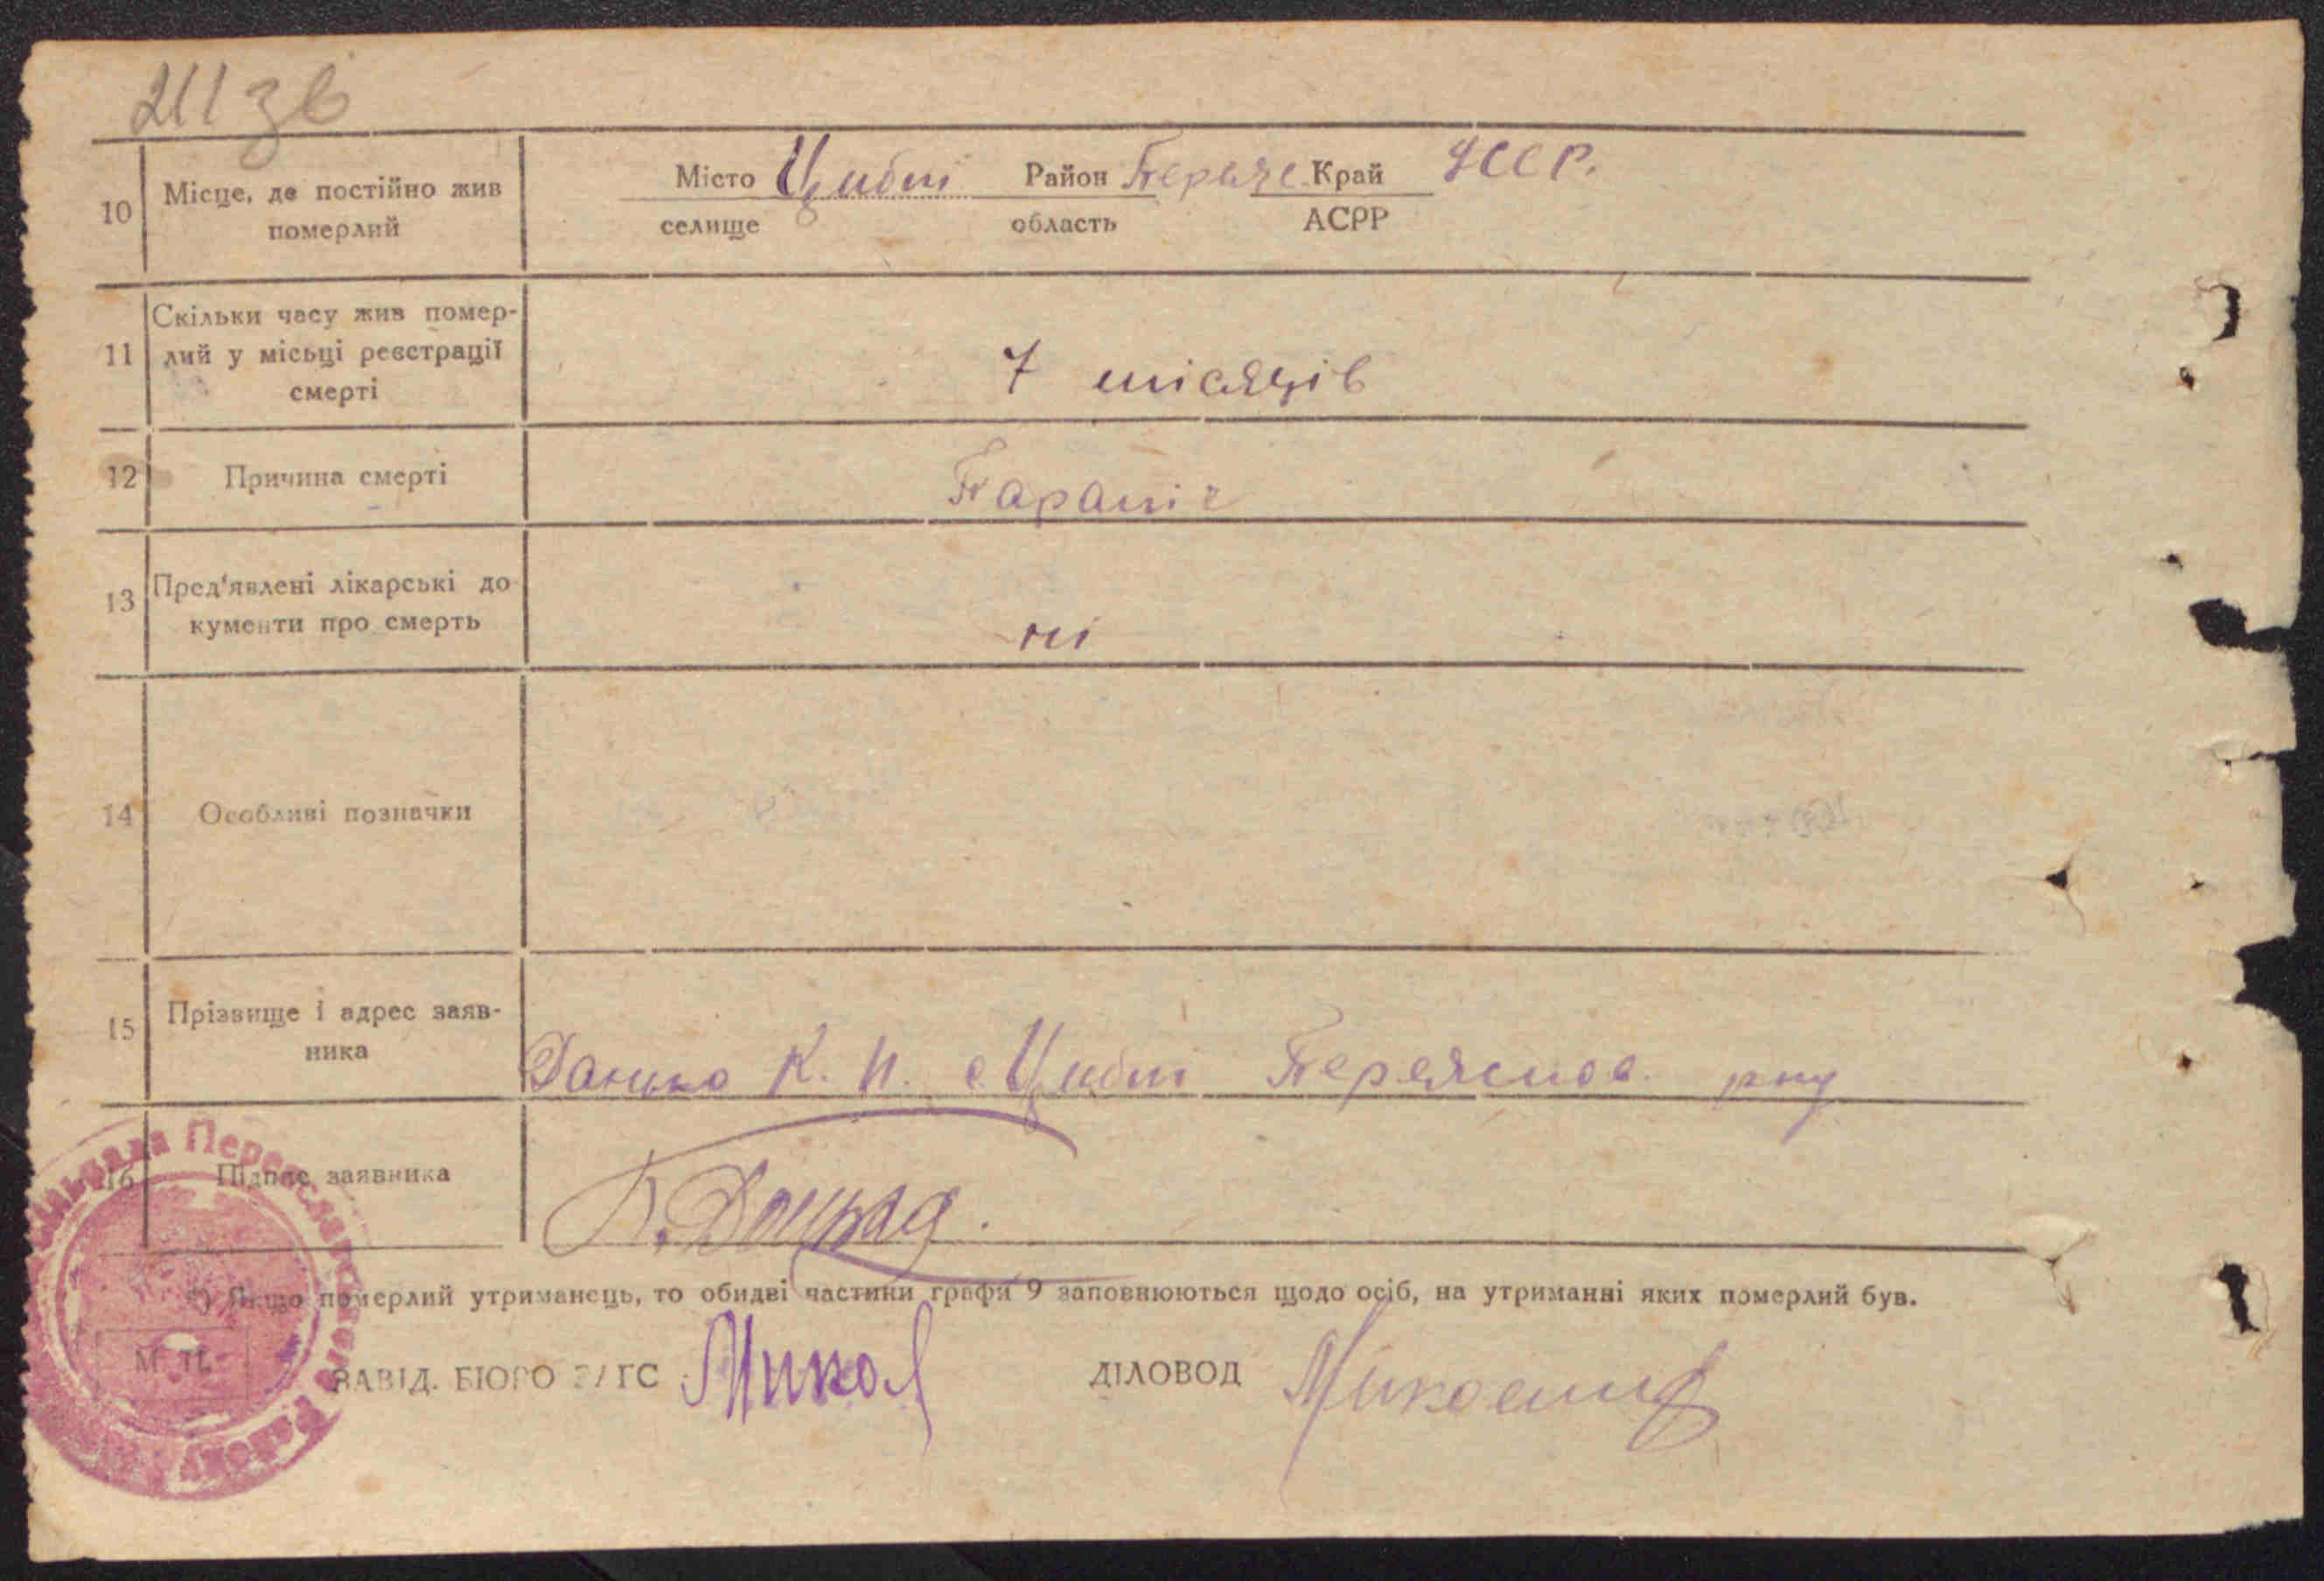 211 зв
10 Місце, де постійно жив померлий
Місто Циблі Район Переяс. Край УССР.
селище область АСРР
11 Скільки часу жив помер-
лий у місьці реєстрації
смерті
7 місяців
12 Причина смерті
13 Пред'явлені лікарські до
кументи про смерть
ні
14 Особливі позначки
15 Прізвище і адрес заяв-
ника
К. П. с Циблі Переяслов. рну
16 Підпис заявника
*) Якщо померлий утриманець, то обидві частини графи 9 заповнюються щодо осіб, на утриманні яких померлий був.
М. П.
ЗАВІД. БЮРО ЗАГС ДІЛОВОД